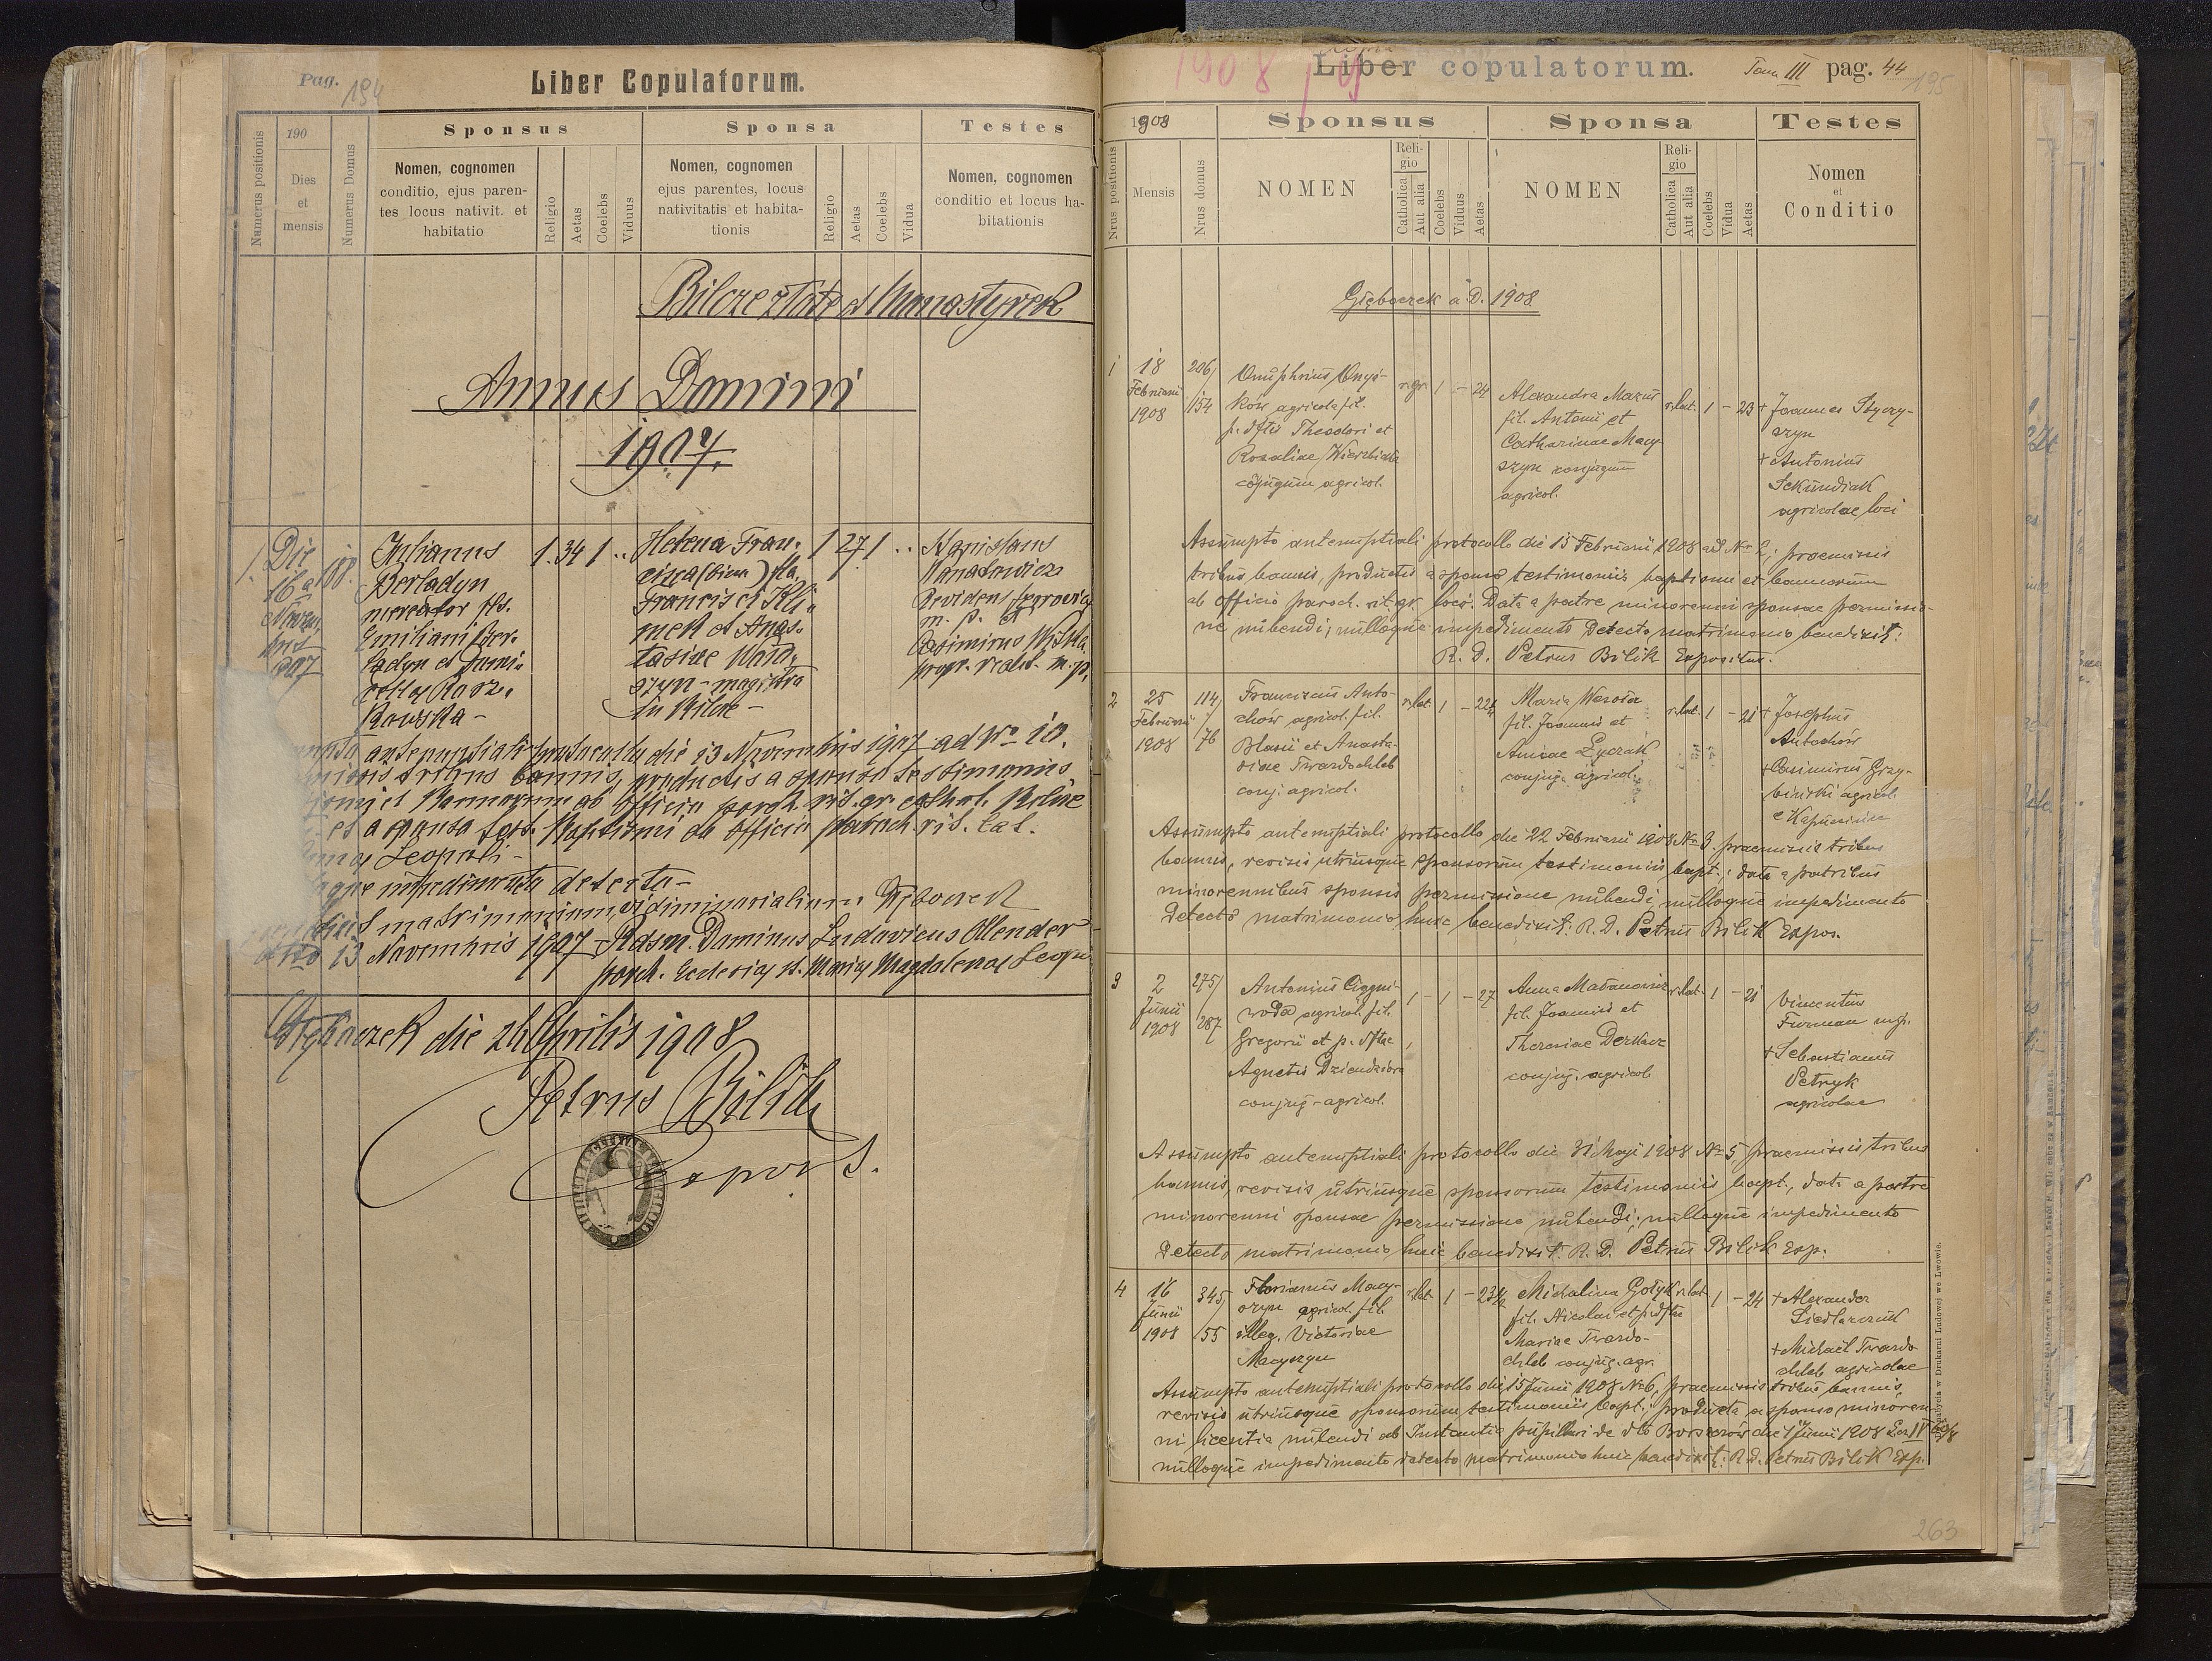 Pag. 194
Liber Copulatorum.
Numerus positionis
190
Dies
et
mensis
Numerus Domus
Sponsus
Nomen, cognomen
conditio, ejus paren-
tes locus nativit. et
habitatio
Religio
Aetas
Coelebs
Viduus
Sponsa
Nomen, cognomen
ejus parentes, locus
nativitatis et habita-
tionis
Religio
Aetas
Coelebs
Vidua
Testes
Nomen, cognomen
conditio et locus ha-
bitationis
Bilcze złote et Monastyrek
Annus Domini
1907.
1. Die
16a
Novem
bris
1907
188.
Julianus
Berladyn
mercator fls.
Emiliani Ber-
ladyn et
Kowska -
1. 34 1 ..
Helena Fran-
cisca (bina) fla.
Francisci Kli-
mek et Anas-
tasiae
szyn - magistra
in Bilcze -
1 27 1 ..
m. p. et
Casimirus
propr. realit. m. p.
antenuptiali protocollo die 13 Novembris 1907 ad No 10.
tribus bannis, productis a sponso testimoniis
et bannorum ab officio paroch. rit. gr. cathol. Bilcze
et a sponsa test. baptismi ab officio paroch. rit. lat.
Leopoli -
impedimento detecto -
matrimonium,
13 Novembris 1907 - Rdsm. Dominus Ludovicus Ollender
paroch. Ecclesiae st. Mariae Magdalenae Leopo
Głęboczek die 24 Aprilis 1908
Petrus Bilik
Expos.
1908
Liber copulatorum.
Tom III pag. 44
195
1908
Nrus positionis
Mensis
Nrus domus
Sponsus
NOMEN
Reli-
gio
Catholica
Aut alia
Coelebs
Viduus
Aetas
Sponsa
NOMEN
Reli-
gio
Catholica
Aut alia
Coelebs
Vidua
Aetas
Testes
Nomen
et
Conditio
Głęboczek a. D. 1908
1
18
Februarii
1908
206/
154
Onuphrius Onyś-
ków agricola fil.
p. dftis Theodori et
Rosaliae Wierzbicka
cojugum agricol.
r. gr. 1 - 24
Alexandra Mazur
fil. Antonii et
Catharinae Macy-
szyn conjugum
agricol.
r. lat. 1 - 23
+ Joannes Styczy-
szyn
+ Antonius
Sekundiak
agricolae loci
Assumpto antenuptiali protocollo die 15 Februarii 1908 ad No 2; praemissis
tribus bannis, productis a sponso testimoniis baptismi et bannorum
ab officio paroch. rit. gr. loci. Data a patre minorenni sponsae permissio-
ne nubendi; nulloque impedimento detecto matrimonio benedixit:
R. D. Petrus Bilik Expositus.
2
25
Februarii
1908
114/
76
Franciscus Anto-
chów agricol. fil.
Blasii et Anasta-
siae Twardochleb
conj. agricol.
r. lat. 1 - 22½
Maria Wesoła
fil. Joannis et
Annae Łyczak
conjug. agricol.
r. lat. 1 - 21
+ Josephus
Antochów
+ Casimirus Grzy-
biński agricol.
Assumpto antenuptiali protocollo die 22 Februarii 1908 No 3. praemissis tribus
bannis, revisis utriusque sponsorum testimoniis bapt.; data a patribus
minorennibus sponsis permissione nubendi, nulloque impedimento
detecto matrimonio huic benedixit: R. D. Petrus Bilik Expos.
3
2
Junii
1908
275/
287
Antonius Ciągni-
woda agricol. fil.
Gregorii et p. dftae
Agnetis Dziendziora
conjug. agricol.
1 - 1 - 27
Anna Mazanowicz
fil. Joannis et
Theresiae Derkacz
conjug. agricol.
r. lat. 1 - 21
Vincentius
Furman mp.
+ Sebastianus
Petryk
agricolae
Assumpto antenuptiali protocollo die 31 Maji 1908 No 5, praemissis tribus
bannis, revisis utriusque sponsorum testimoniis bapt., data a patre
minorenni sponsae permissione nubendi; nulloque impedimento
detecto matrimonio huic benedixit: R. D. Petrus Bilik Exp.
4
16
Junii
1908
345/
55
Florianus Macy-
szyn agricol. fil.
illeg. Victoriae
Macyszyn
r. lat. 1 - 23½
Michalina Gołyk
fil. Nicolai et p. dftae
Mariae Twardo-
chleb conjug. agr.
r. lat. 1 - 24
+ Alexander
Siedlarczuk
+ Michaël Twardo
chleb agricolae
Assumpto antenuptiali protocollo die 15 Junii 1908 No 6, praemissis tribus bannis,
revisis utriusque sponsorum testimoniis bapt.; producta a sponso minoren-
ni licentia nubendi ab Instantia pupillari de dto Borszczów die 1 Junii 1908
nulloque impedimento detecto matrimonio huic benedixit: R. D. Petrus Bilik Exp.
w Drukarni Ludowej we Lwowie.
263